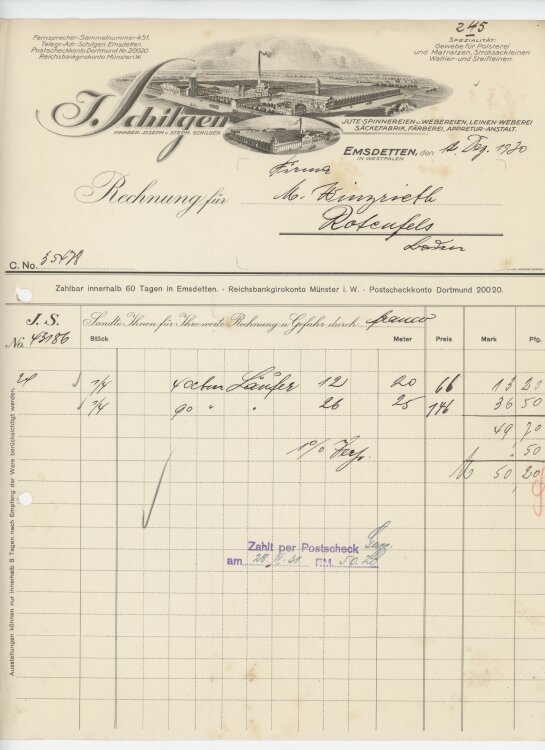 Fernsprecher-Sammelnummer 451.
Telegr.-Adr. Schilgen Emsdetten.
Postscheckkonto Dortmund Nr. 20020.
Reichsbankgirokonto Münster i. W.
245
SPEZIALITÄT:
Gewebe für Polsterei
und Matratzen, Strohsackleinen
Wattier- und Steifleinen.
J. Schilgen
INHABER: JOSEPH u. STEPH. SCHILGEN
JUTE-SPINNEREIEN u. WEBEREIEN, LEINEN-WEBEREI
SÄCKEFABRIK, FÄRBEREI, APPRETUR-ANSTALT.
EMSDETTEN, den 12. Dez. 1930
IN WESTFALEN
Firma
Rechnung für M. Hinzrieth
Rotenfels
Baden
C. No. 35478
Zahlbar innerhalb 60 Tagen in Emsdetten. · Reichsbankgirokonto Münster i. W. · Postscheckkonto Dortmund 20020.
J. S. Sandte Ihnen für Ihre werte Rechnung u. Gefahr durch franco
No. 43186 Stück Meter Preis Mark Pfg.
1/4 40 cbm Läufer 12 20 66 13 20
1/4 90 " " 26 25 146 36 50
49 70
1% Verp. 50
50 20
Zahlt per Postscheck
am 28. II. 31 RM. 50.20
Ausstellungen können nur innerhalb 8 Tagen nach Empfang der Ware berücksichtigt werden.